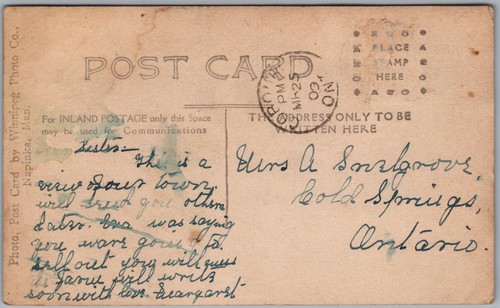 Photo, Post Card by Winnipeg Photo Co.,
Napinka, Man.
POST CARD
PLACE
STAMP
HERE
PM
MR 25
09
ON
For INLAND POSTAGE only this Space
may be used for Communications
THE ADDRESS ONLY TO BE
WRITTEN HERE
Sister
This is a
view of our town
will send you others
later. Eva was saying
you ware going to
sell out you will
soon with love Margaret
Mrs A Snelgrove
Cold Springs
Ontario.